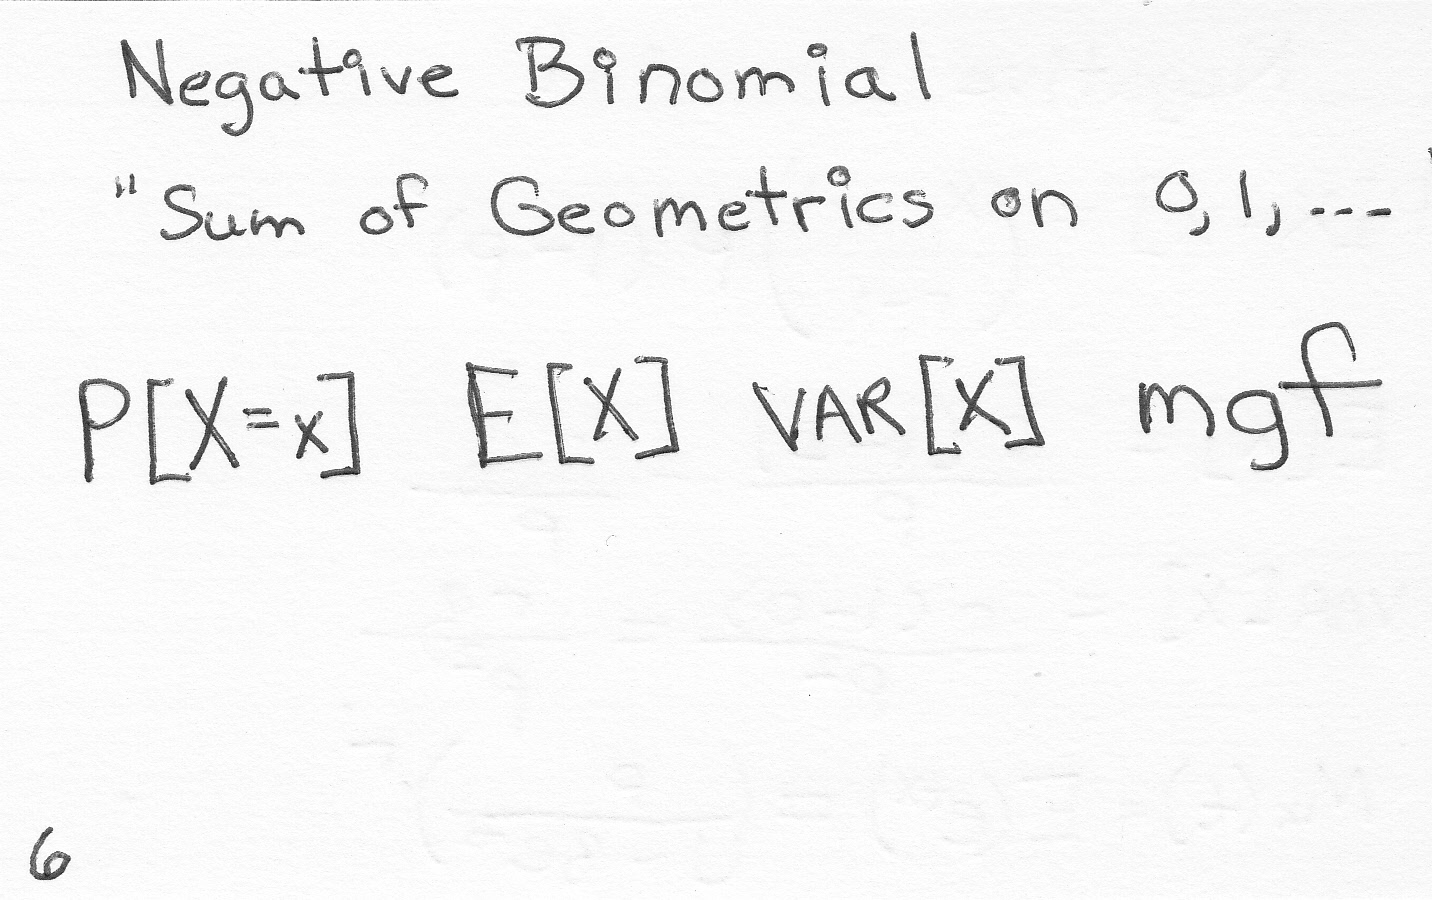 Negative Binomial
"Sum of Geometrics on 0,1,---"
P[X=x] E[X] VAR[X] mgf
6